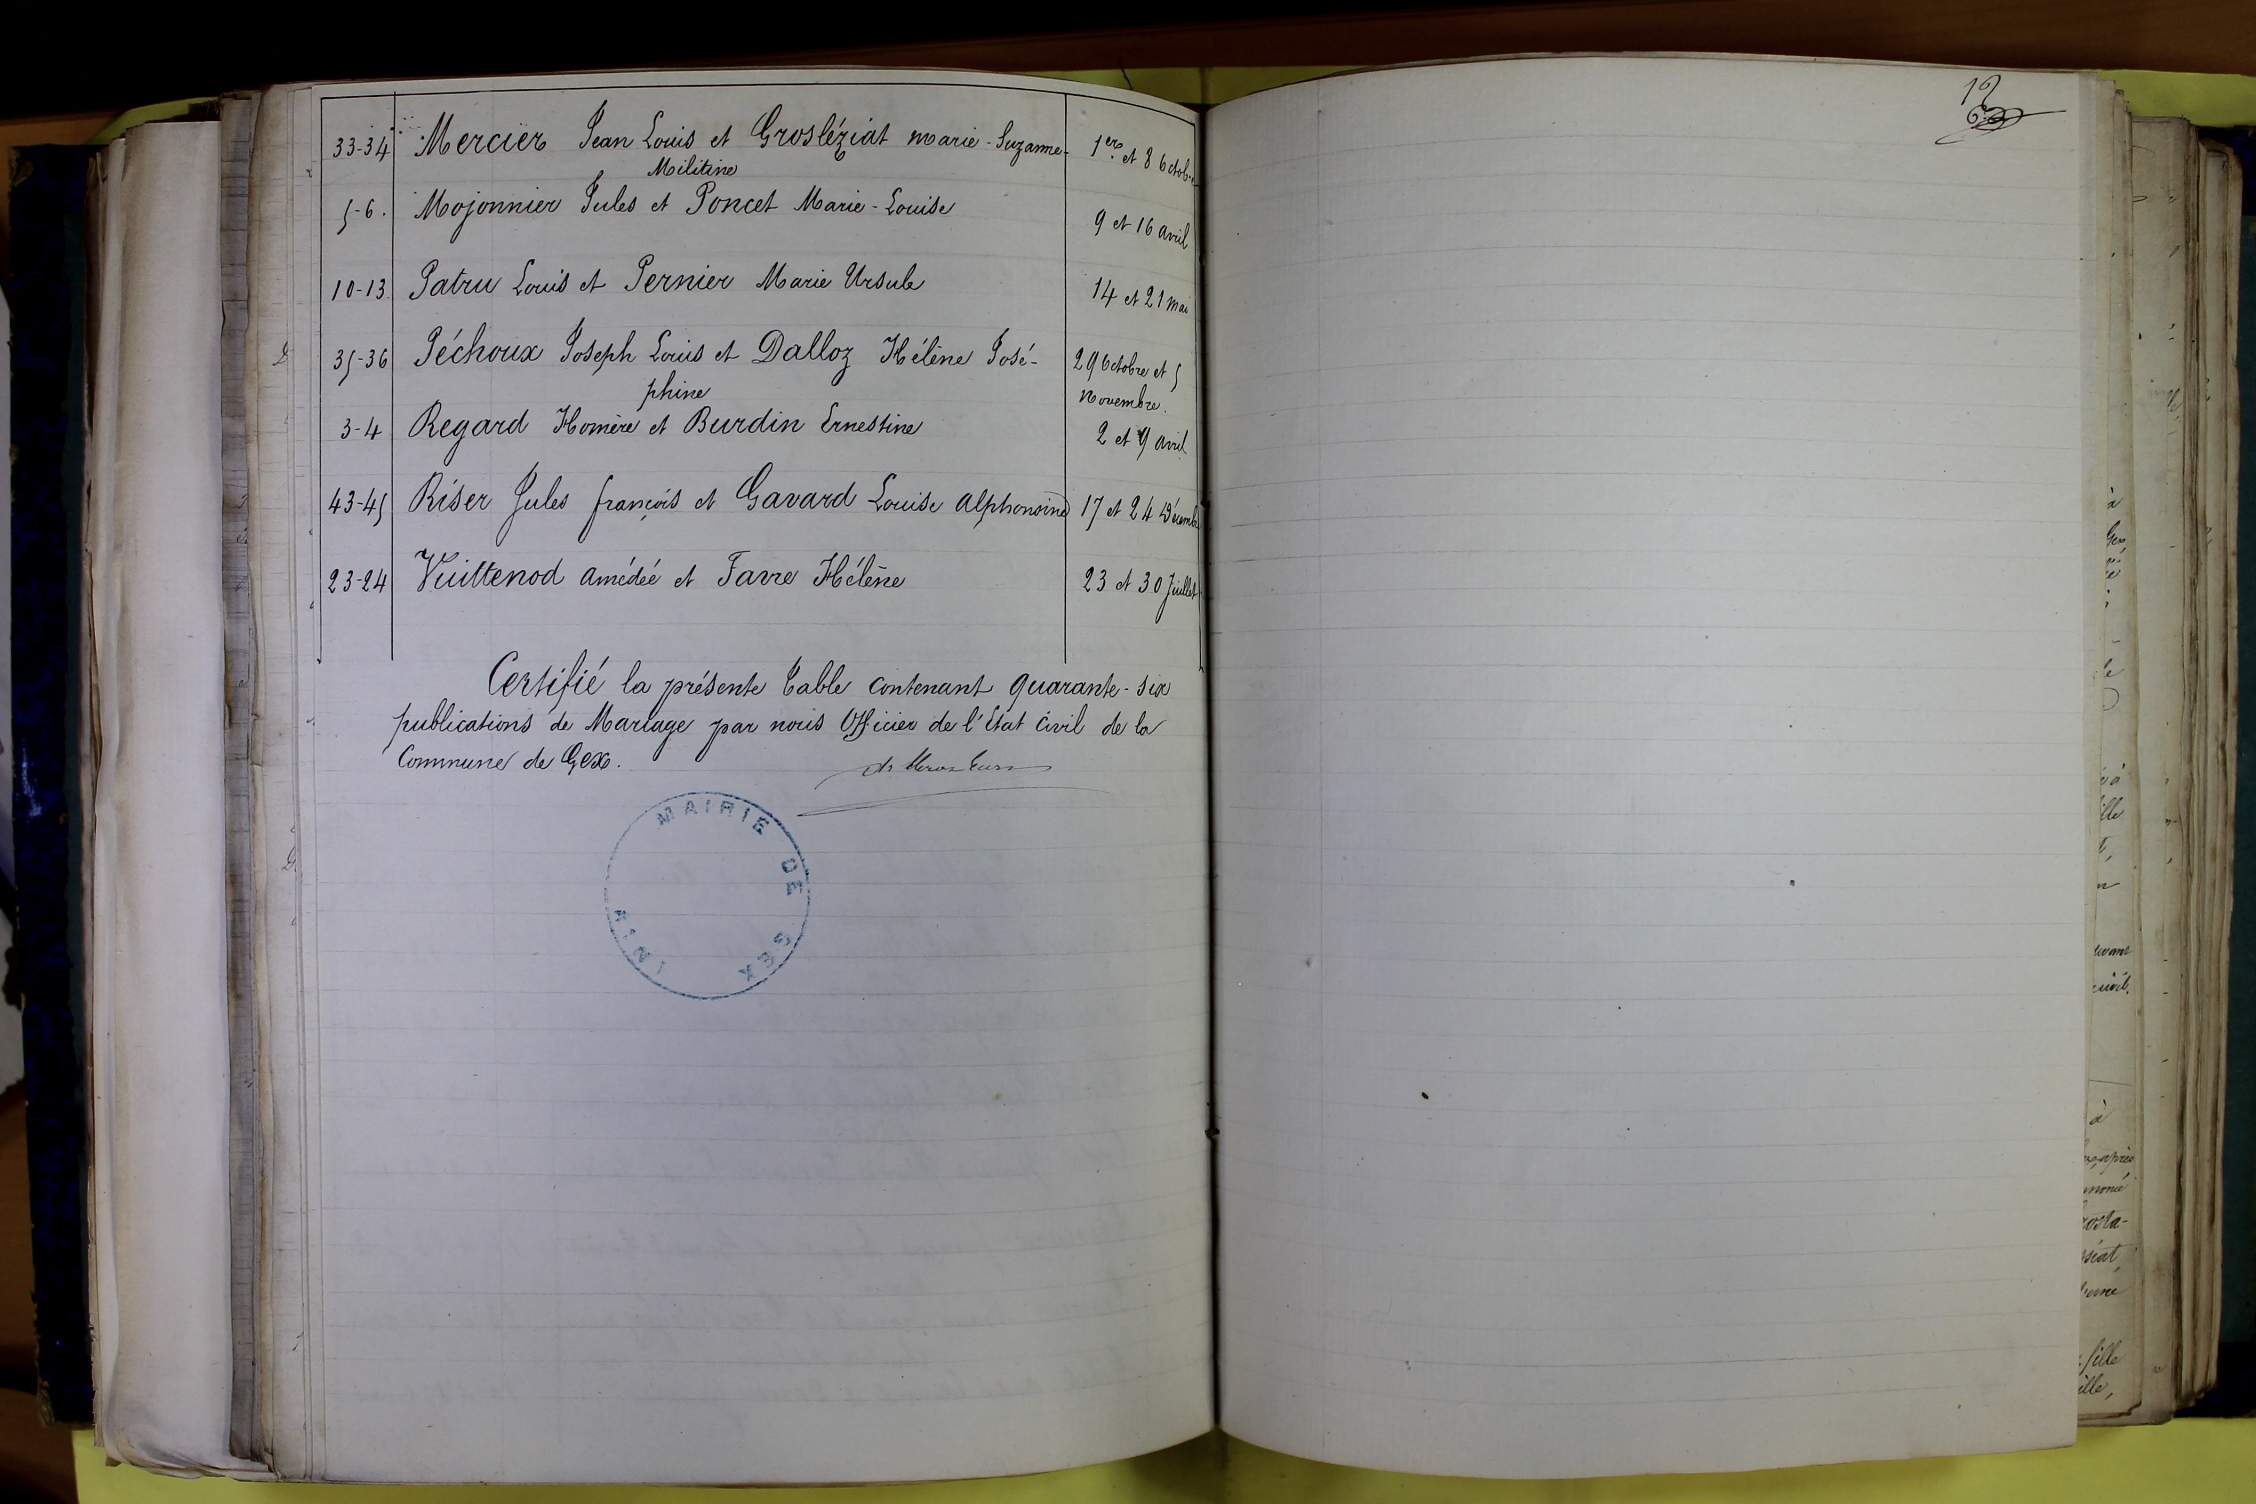 33-34 Mercier Jean Louis et Grosléziat Marie-Suzanne- 1er et 8 Octobre
Militine
5-6. Mojonnier Jules et Poncet Marie-Louise 9 et 16 avril
10-13 Patru Louis et Pernier Marie Ursule 14 et 21 mai
35-36 Péchoux Joseph Louis et Dalloz Hélène José- 29 Octobre et 5
phine Novembre.
3-4 Regard Homère et Burdin Ernestine 2 et 9 avril
43-45 Riser Jules françois et Gavard Louise Alphonsine 17 et 24 Décembre
23-24 Vuittenod Amédée et Favre Hélène 23 et 30 Juillet
Certifié la présente Table contenant quarante-six
publications de Mariage par nous Officier de l'Etat Civil de la
Commune de Gex.
MAIRIE DE GEX
AIN
12